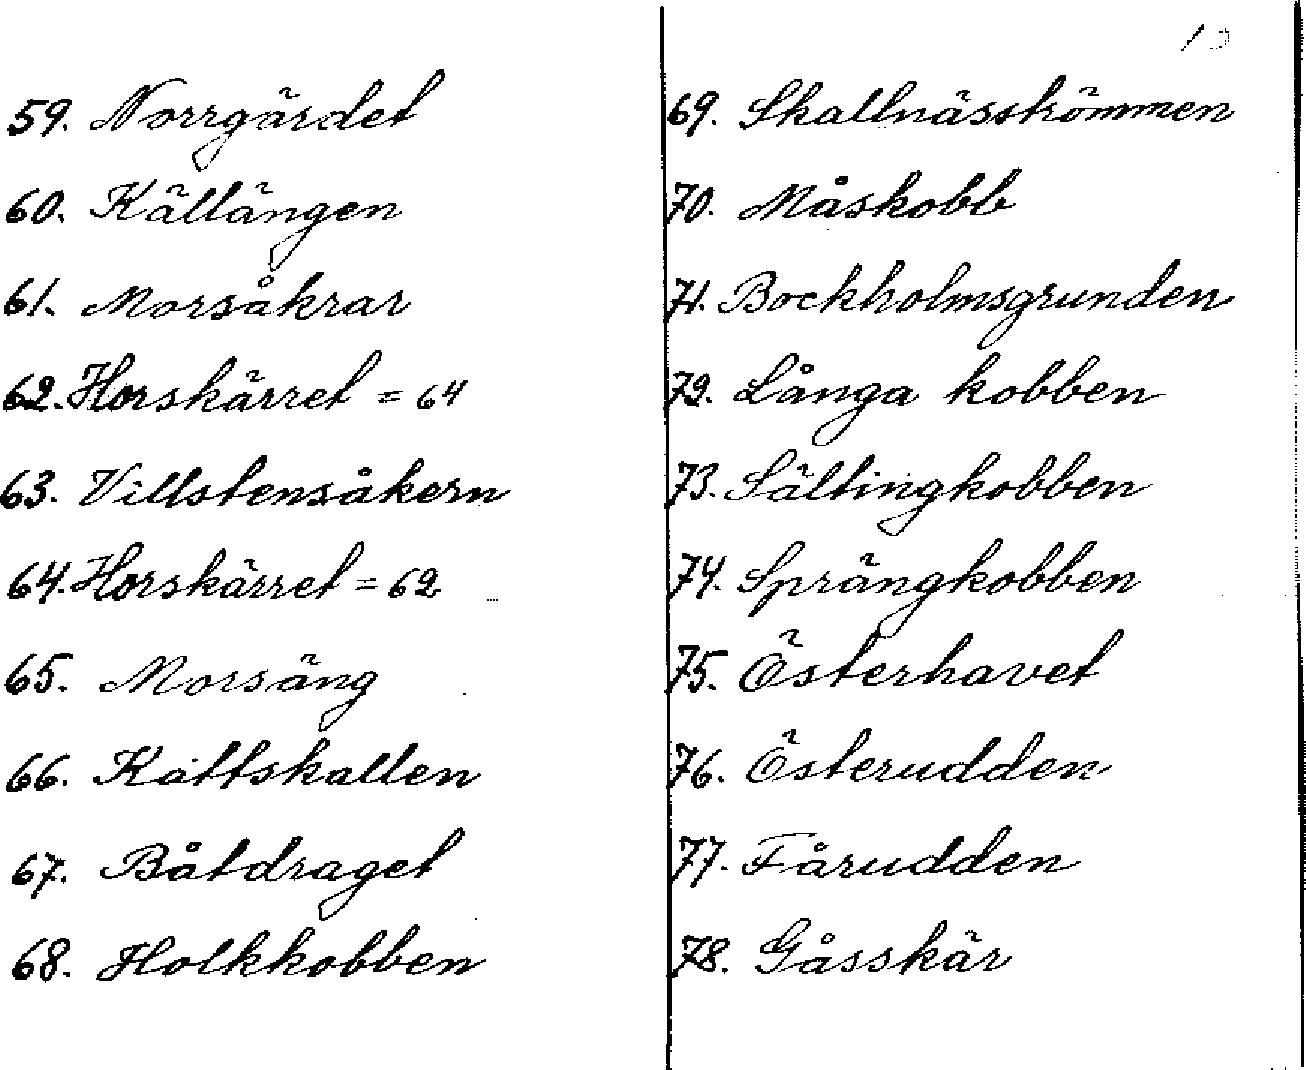 59. Norrgärdet
60. Källängen
61. Morsåkrar
62. Horskärret = 64
63. Villstensåkern
64. Horskärret = 62
65. Morsäng
66. Kattskallen
67. Båtdraget
68. Holkkobben
69. Skallnäsströmmen
70. Måskobb
71. Bockholmsgrunden
72. Långa kobben
73. Sältingkobben
74. Sprängkobben
75. Österhavet
76. Österudden
77. Fårudden
78. Gåsskär